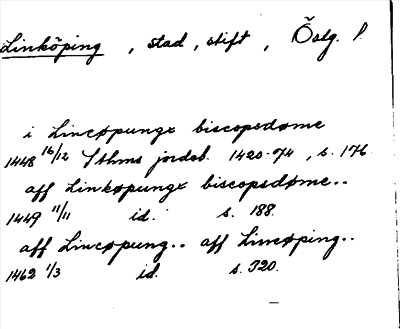 Linköping, stad, stift, Östg. l.
i Lincøpunge biscopsdøme
1448 16/12 Sthms jordeb. 1420-74, s. 176.
aff Linkøpunge biscopsdøme..
1449 11/11 id. s. 188.
aff Lincøpung.. aff Lincøping..
1462 1/3 id. s. 320.